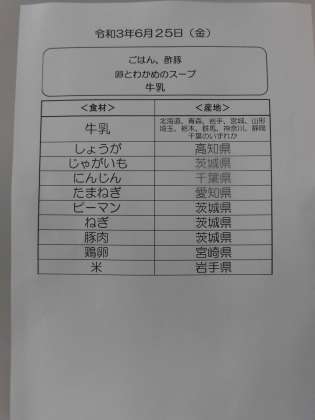 令和3年6月25日（金）
ごはん、酢豚
卵とわかめのスープ
牛乳
＜食材＞ ＜産地＞
牛乳 北海道、青森、岩手、宮城、山形
埼玉、栃木、群馬、神奈川、静岡
千葉のいずれか
しょうが 高知県
じゃがいも 茨城県
にんじん 千葉県
たまねぎ 愛知県
ピーマン 茨城県
ねぎ 茨城県
豚肉 茨城県
鶏卵 宮崎県
米 岩手県